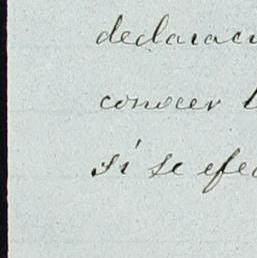 declarac
conocer l
si se efec